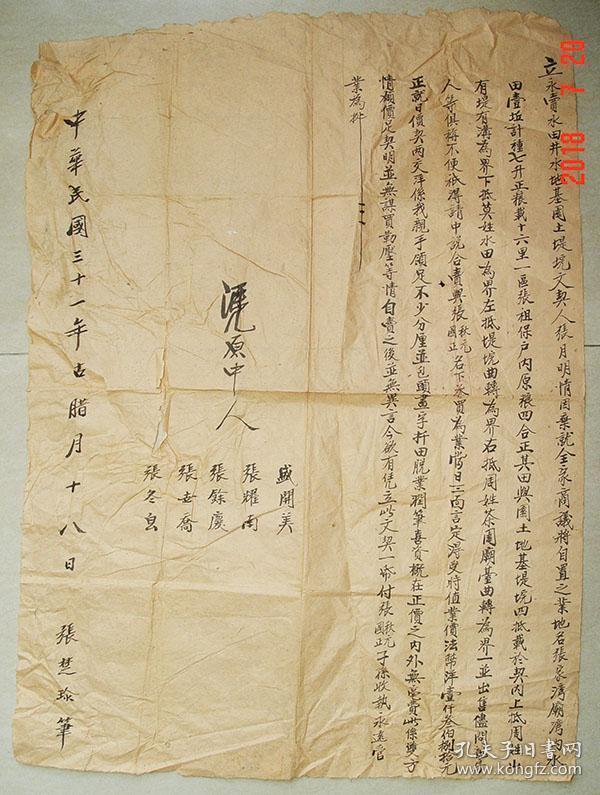 立永賣水田井水地基園土堤垸文契人張月明情因棄就全家商議將自置之業地名張家灣廟灣內水
田壹坵計種七升正粮載十六里一區張祖保戶內原粮四合正其田與園土地基堤垸四抵載於契內上抵周姓出
有堤有溝為界下抵莫姓水田為界左抵堤垸曲轉為界右抵周姓茶園廟臺曲轉為界一並出售儘問
人等俱稱不便衹得請中說合賣與張秋元國正名下承買為業當日三面言定得受時值業價法幣洋壹仟叁佰捌拾元
正就日價契兩交洋係我親手領足不少分厘並包頭畫字折田脫業潤筆喜資概在正價之內外無此係雙方
情願價足契明並無謀買勒壓等情自賣之後並無異言今欲有凭立此文契一帋付張秋元國正子孫收執永遠管
業為批
凭原中人
盛開美
張耀南
張餘慶
張世喬
張冬良
中華民國三十一年古腊月十八日
張楚珍筆
2018 7 20
孔夫子旧书网
www.kongfz.com